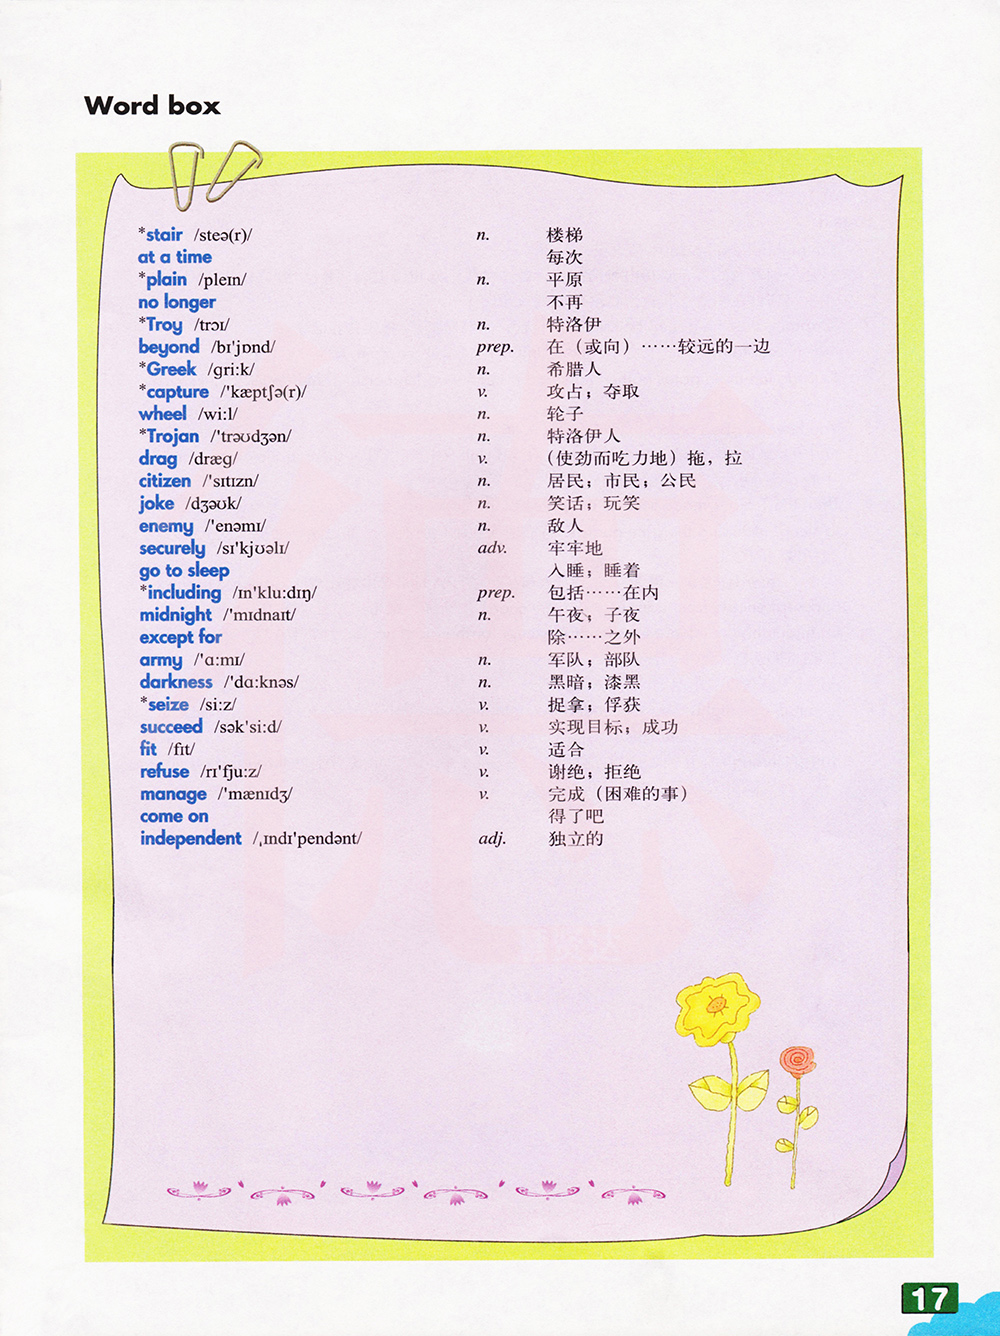 Word box
*stair /steə(r)/ n. 楼梯
at a time 每次
*plain /pleɪn/ n. 平原
no longer 不再
*Troy /trɔɪ/ n. 特洛伊
beyond /bɪ'jɒnd/ prep. 在（或向）……较远的一边
*Greek /ɡri:k/ n. 希腊人
*capture /'kæptʃə(r)/ v. 攻占；夺取
wheel /wi:l/ n. 轮子
*Trojan /'trəʊdʒən/ n. 特洛伊人
drag /dræɡ/ v. （使劲而吃力地）拖，拉
citizen /'sɪtɪzn/ n. 居民；市民；公民
joke /dʒəʊk/ n. 笑话；玩笑
enemy /'enəmɪ/ n. 敌人
securely /sɪ'kjʊəlɪ/ adv. 牢牢地
go to sleep 入睡；睡着
*including /ɪn'klu:dɪŋ/ prep. 包括……在内
midnight /'mɪdnaɪt/ n. 午夜；子夜
except for 除……之外
army /'ɑ:mɪ/ n. 军队；部队
darkness /'dɑ:knəs/ n. 黑暗；漆黑
*seize /si:z/ v. 捉拿；俘获
succeed /sək'si:d/ v. 实现目标；成功
fit /fɪt/ v. 适合
refuse /rɪ'fju:z/ v. 谢绝；拒绝
manage /'mænɪdʒ/ v. 完成（困难的事）
come on 得了吧
independent /ˌɪndɪ'pendənt/ adj. 独立的
17